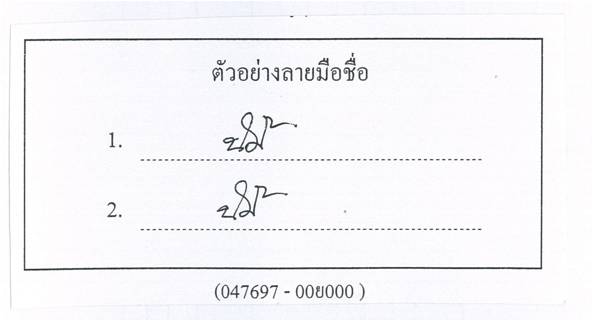 ตัวอย่างลายมือชื่อ
1.
2.
(047697 - 00ย000 )